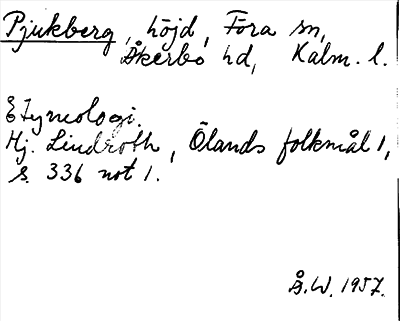 Pjukberg, höjd, Föra sn,
Åkerbo hd, Kalm. l.
Etymologi.
Hj. Lindroth, Ölands folkmål 1,
s. 336 not 1.
Å.W. 1957.